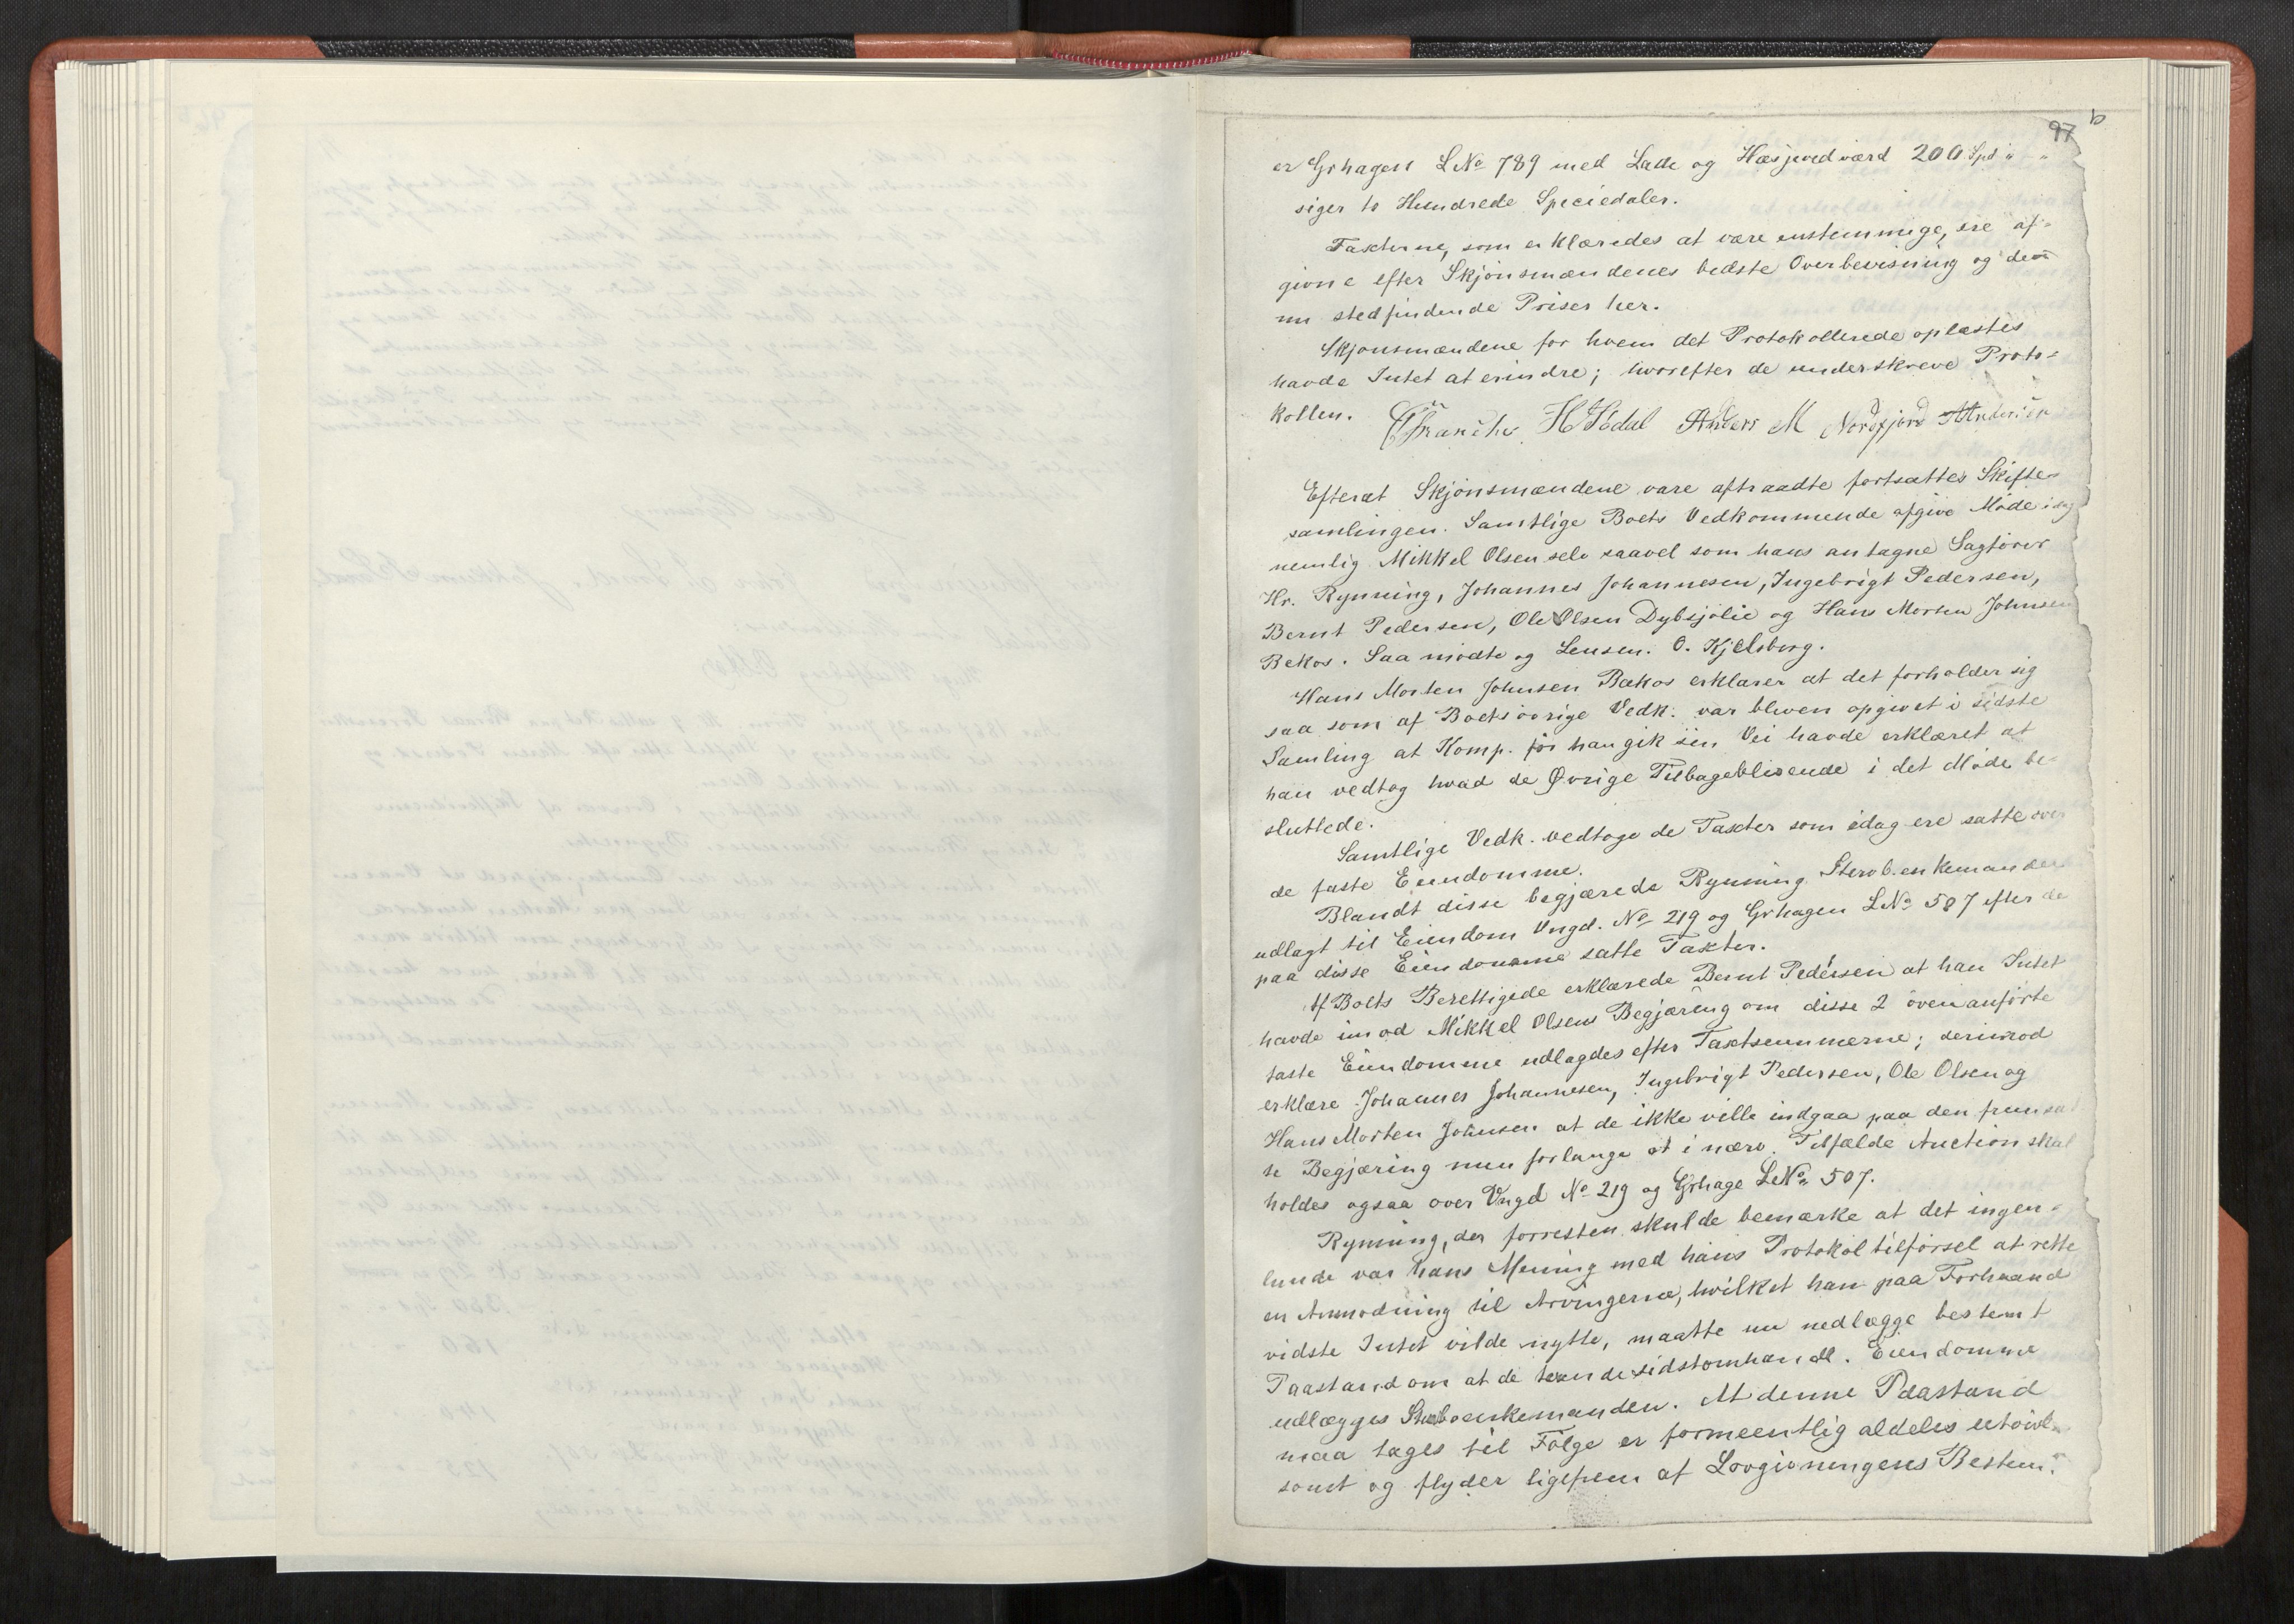 97 b
er Grhagen LNo 789 med Lade og Hæsjeved værd 200 Spd " "
siger to Hundrede Speciedaler.
Taxterne, som erklæredes at være enstemmige, ere af-
givne efter Skjönsmændenes bedste Overbevisning og den
nu stedfindende Priser her.
Skjönsmændene for hvem det Protokollerede oplæstes
havde Intet at erindre; hvorefter de underskreve Proto-
kollen.
H Hödal Anders M Nordfjord
Efterat Skjönsmændene vare aftraadte fortsattes Skifte-
samlingen. Samtlige Boets Vedkommende afgive Möde idag
nemlig Mikkel Olsen selv saavel som hans antagne Sagförer
Hr. Rynning, Johannes Johannesen, Ingebrigt Pedersen,
Bernt Pedersen, Ole Olsen Dybsjölie og Hans Morten Johnsen
Bekos. Saa mödte og Lensm. O. Kjelsberg.
Hans Morten Johnsen Bækos erklærer at det forholder sig
saa som af Boets övrige Vedk. var bleven opgivet i sidste
Samling at Komp. för han gik sin Vei havde erklæret at
han vedtog hvad de Øvrige Tilbageblivende i det Möde be-
sluttede.
Samtlige Vedk. vedtoge de Taxter som idag ere satte over
de faste Eiendomme.
Blandt disse begjærede Rynning Stervb.enkemanden
udlagt til Eiendom Vngd. No 219 og Grhagen LNo 587 efter de
paa disse Eiendomme satte Taxter.
Af Boets Berettigede erklærede Bernt Pedersen at han Intet
havde imod Mikkel Olsens Begjæring om disse 2 ovenanförte
faste Eiendomme udlagdes efter Taxtsummerne; derimod
erklære Johannes Johannesen, Ingebrigt Pedersen, Ole Olsen og
Hans Morten Johnsen at de ikke ville indgaa paa den fremsat
te Begjæring men forlange at i nærv. Tilfælde Auction skal
holdes ogsaa over Vngd No 219 og Grhage LNo 507.
Rynning, der forresten skulde bemærke at det ingen-
lunde var hans Mening med hans Protokoltilförsel at rette
en Anmodning til Arvingerne, hvilket han paa Forhaand
vidste Intet vilde nytte, maatte nu nedlægge bestemt
Paastand om at de tvende sidstomhandl. Eiendomme
udlægges Stervboenkemanden. At denne Paastand
maa tages til Fölge er formeentlig aldeles utvivl-
somt og flyder ligefrem af Lovgivningens Bestem-